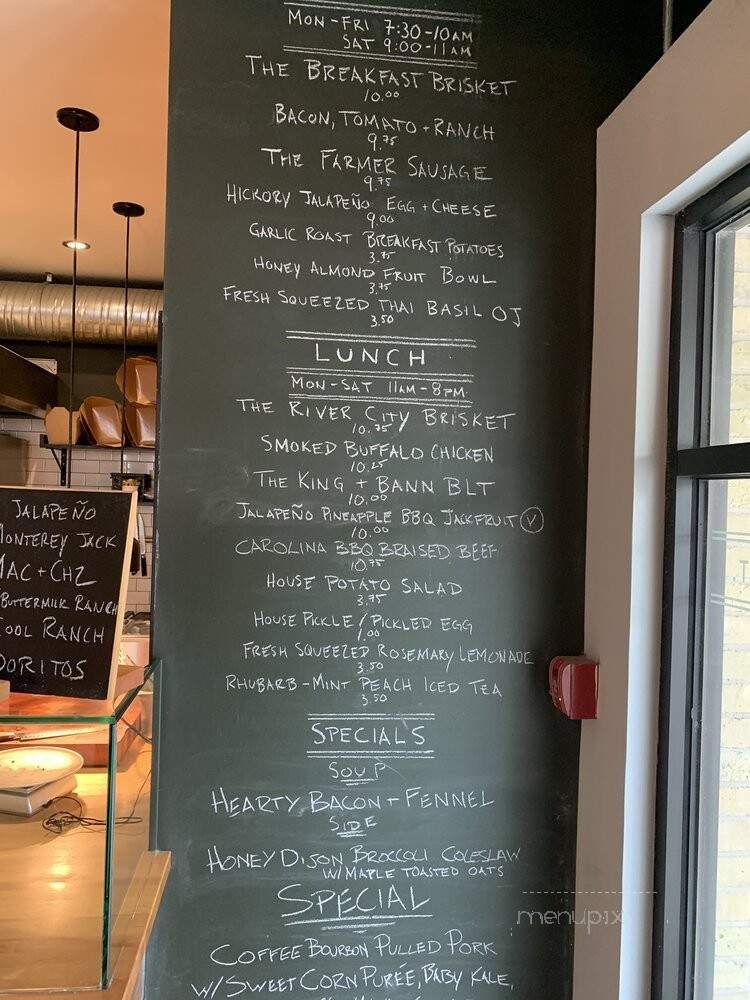 MON-FRI 7:30-10AM
SAT 9:00-11AM
THE BREAKFAST BRISKET
10.00
BACON, TOMATO + RANCH
9.75
THE FARMER SAUSAGE
9.75
HICKORY JALAPEÑO EGG + CHEESE
9.00
GARLIC ROAST BREAKFAST POTATOES
3.75
HONEY ALMOND FRUIT BOWL
3.75
FRESH SQUEEZED THAI BASIL OJ
3.50
LUNCH
MON-SAT 11AM-8PM
THE RIVER CITY BRISKET
10.75
SMOKED BUFFALO CHICKEN
10.25
THE KING + BANN BLT
10.00
JALAPEÑO PINEAPPLE BBQ JACKFRUIT V
10.00
CAROLINA BBQ BRAISED BEEF
10.75
HOUSE POTATO SALAD
3.75
HOUSE PICKLE / PICKLED EGG
1.00
FRESH SQUEEZED ROSEMARY LEMONADE
3.50
RHUBARB-MINT PEACH ICED TEA
3.50
SPECIALS
SOUP
HEARTY BACON + FENNEL
SIDE
HONEY DIJON BROCCOLI COLESLAW
W/ MAPLE TOASTED OATS
SPECIAL
COFFEE BOURBON PULLED PORK
W/ SWEET CORN PURÉE, BABY KALE,
JALAPEÑO
MONTEREY JACK
MAC + CHZ
BUTTERMILK RANCH
COOL RANCH
DORITOS
menupix